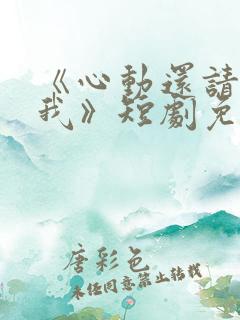 《心動還請
我》短劇免
唐彩色
未經同意禁止轉載